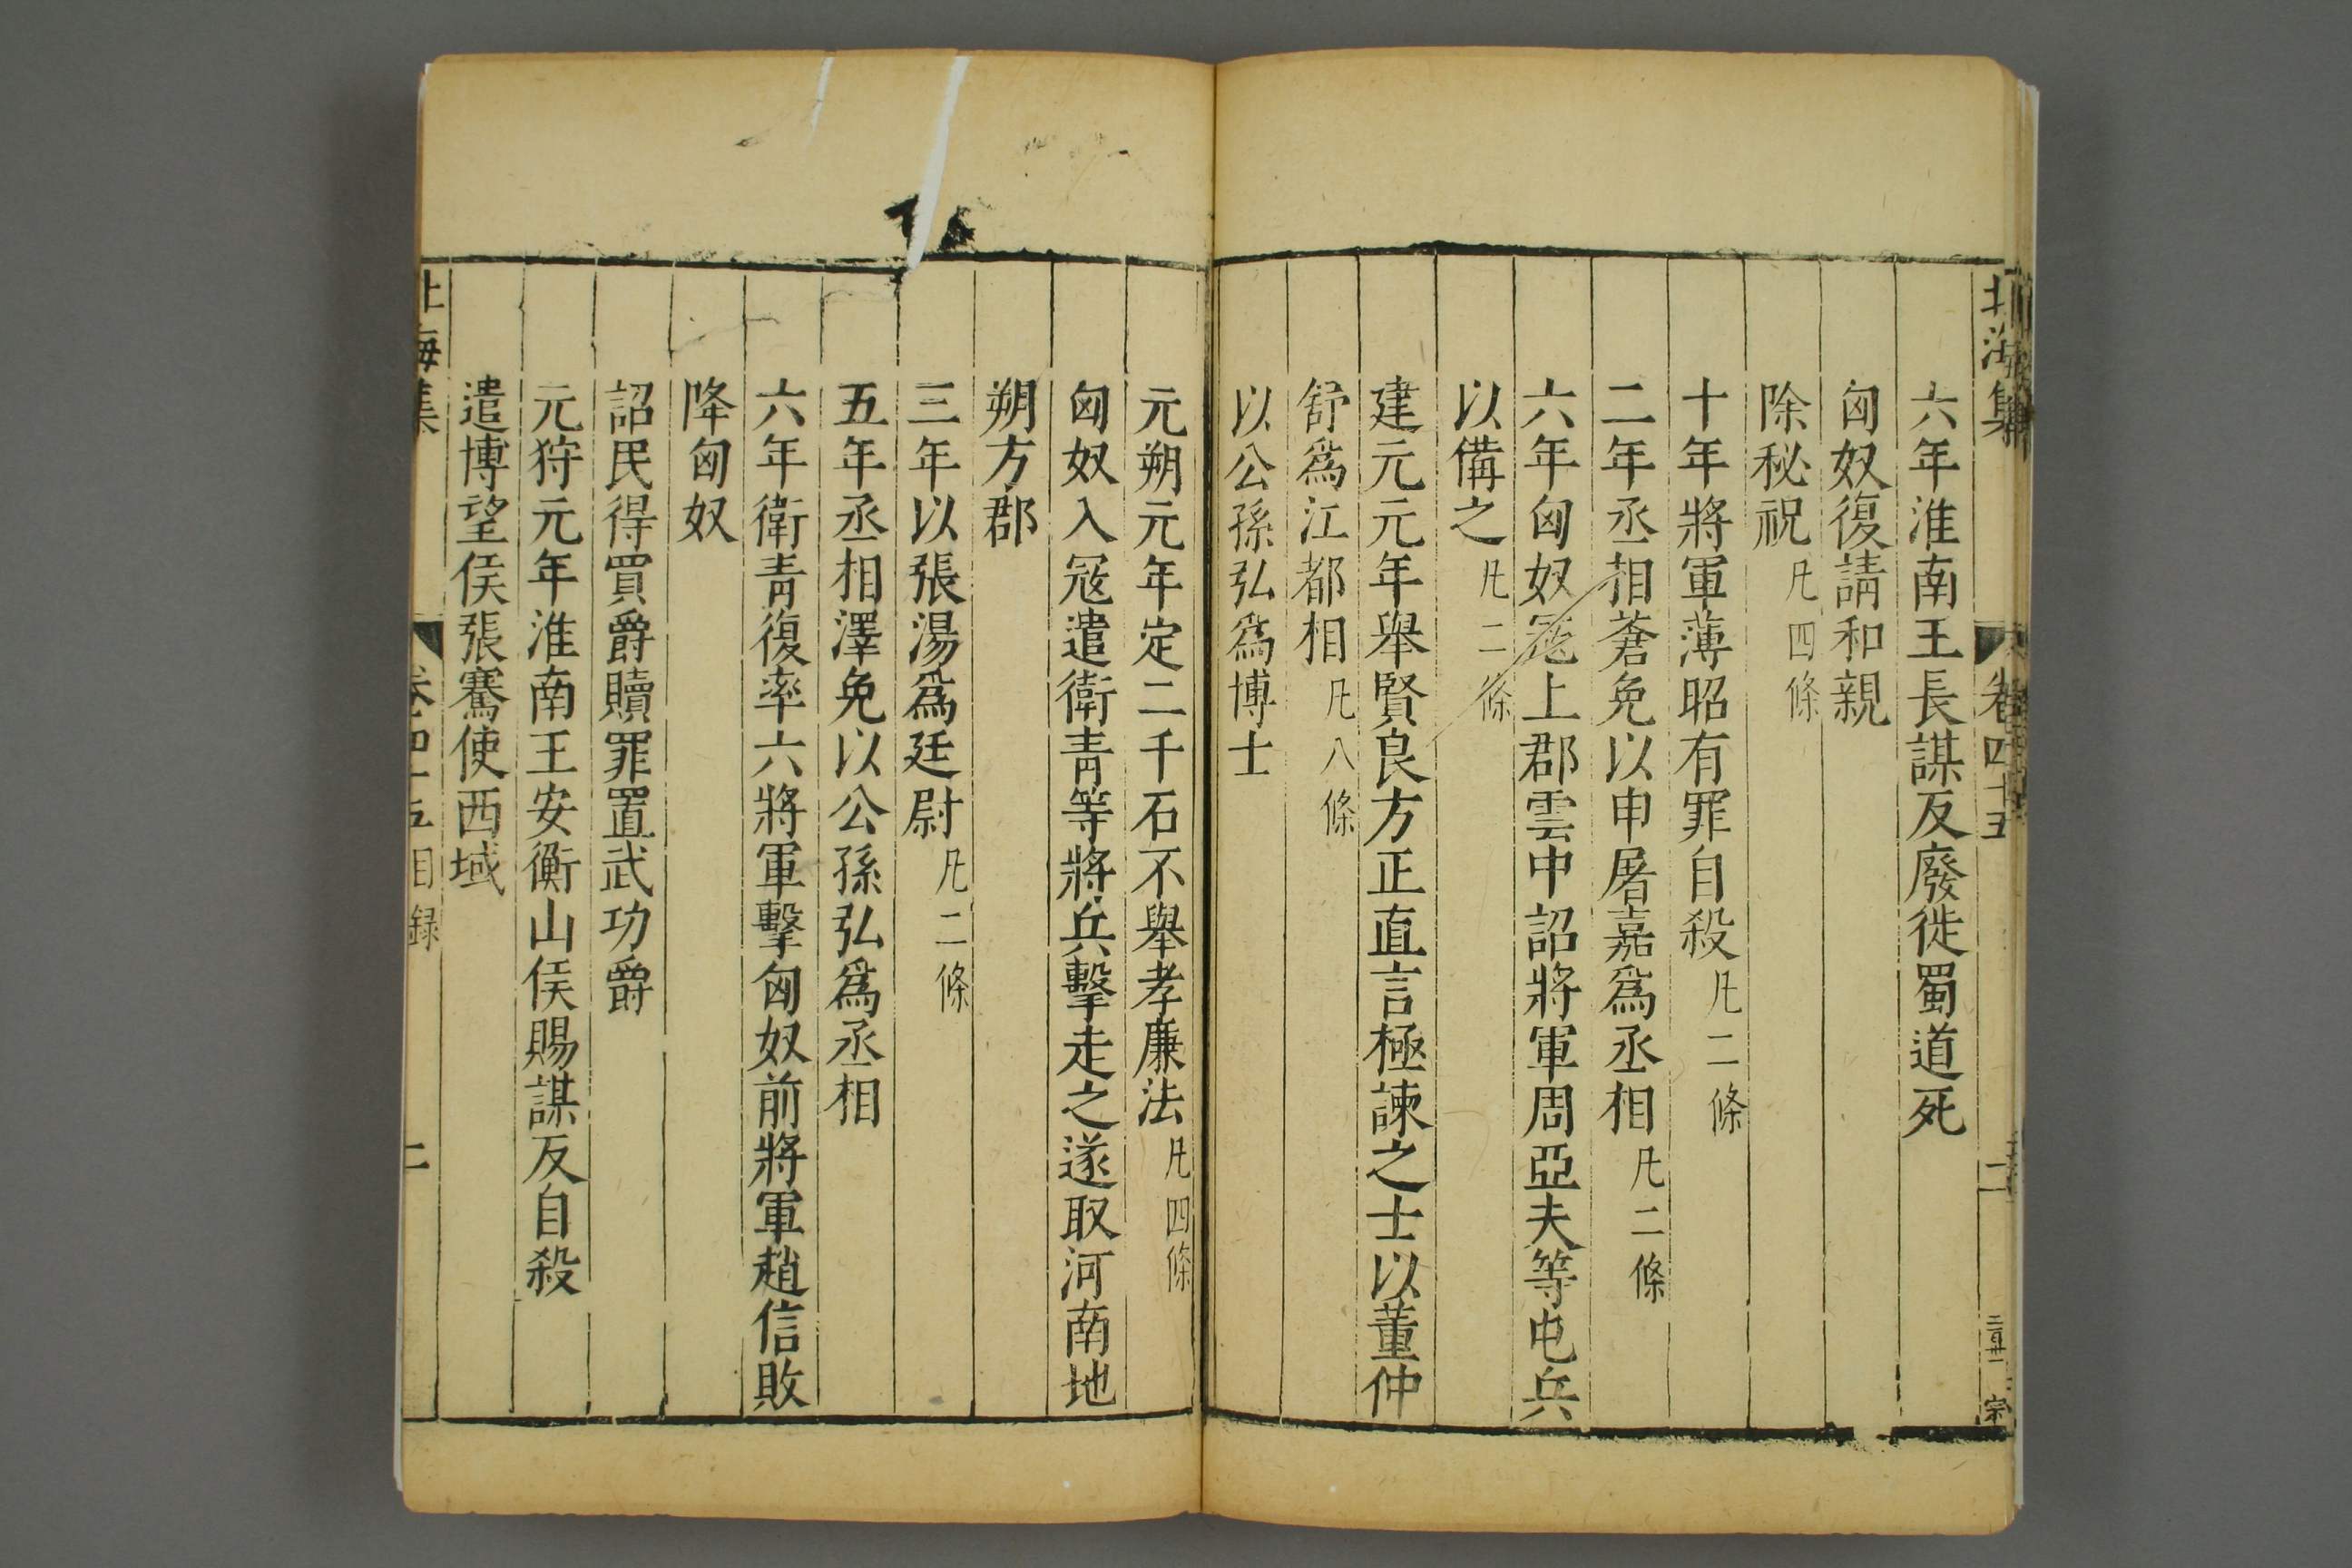 北海集 卷四十五 二 宗
六年淮南王長謀反廢徙蜀道死
匈奴復請和親
除秘祝凡四條
十年將軍薄昭有罪自殺凡二條
二年丞相蒼免以申屠嘉爲丞相凡二條
六年匈奴冦上郡雲中詔將軍周亞夫等屯兵
以備之凡二條
建元元年舉賢良方正直言極諫之士以董仲
舒爲江都相凡八條
以公孫弘爲博士
元朔元年定二千石不舉孝廉法凡四條
匈奴入冦遣衛青等將兵擊走之遂取河南地
朔方郡
三年以張湯爲廷尉凡二條
五年丞相澤免以公孫弘爲丞相
六年衛青復率六將軍擊匈奴前將軍趙信敗
降匈奴
詔民得買爵贖罪置武功爵
元狩元年淮南王安衡山侯賜謀反自殺
遣博望侯張騫使西域
北海集 卷四十五目録 二